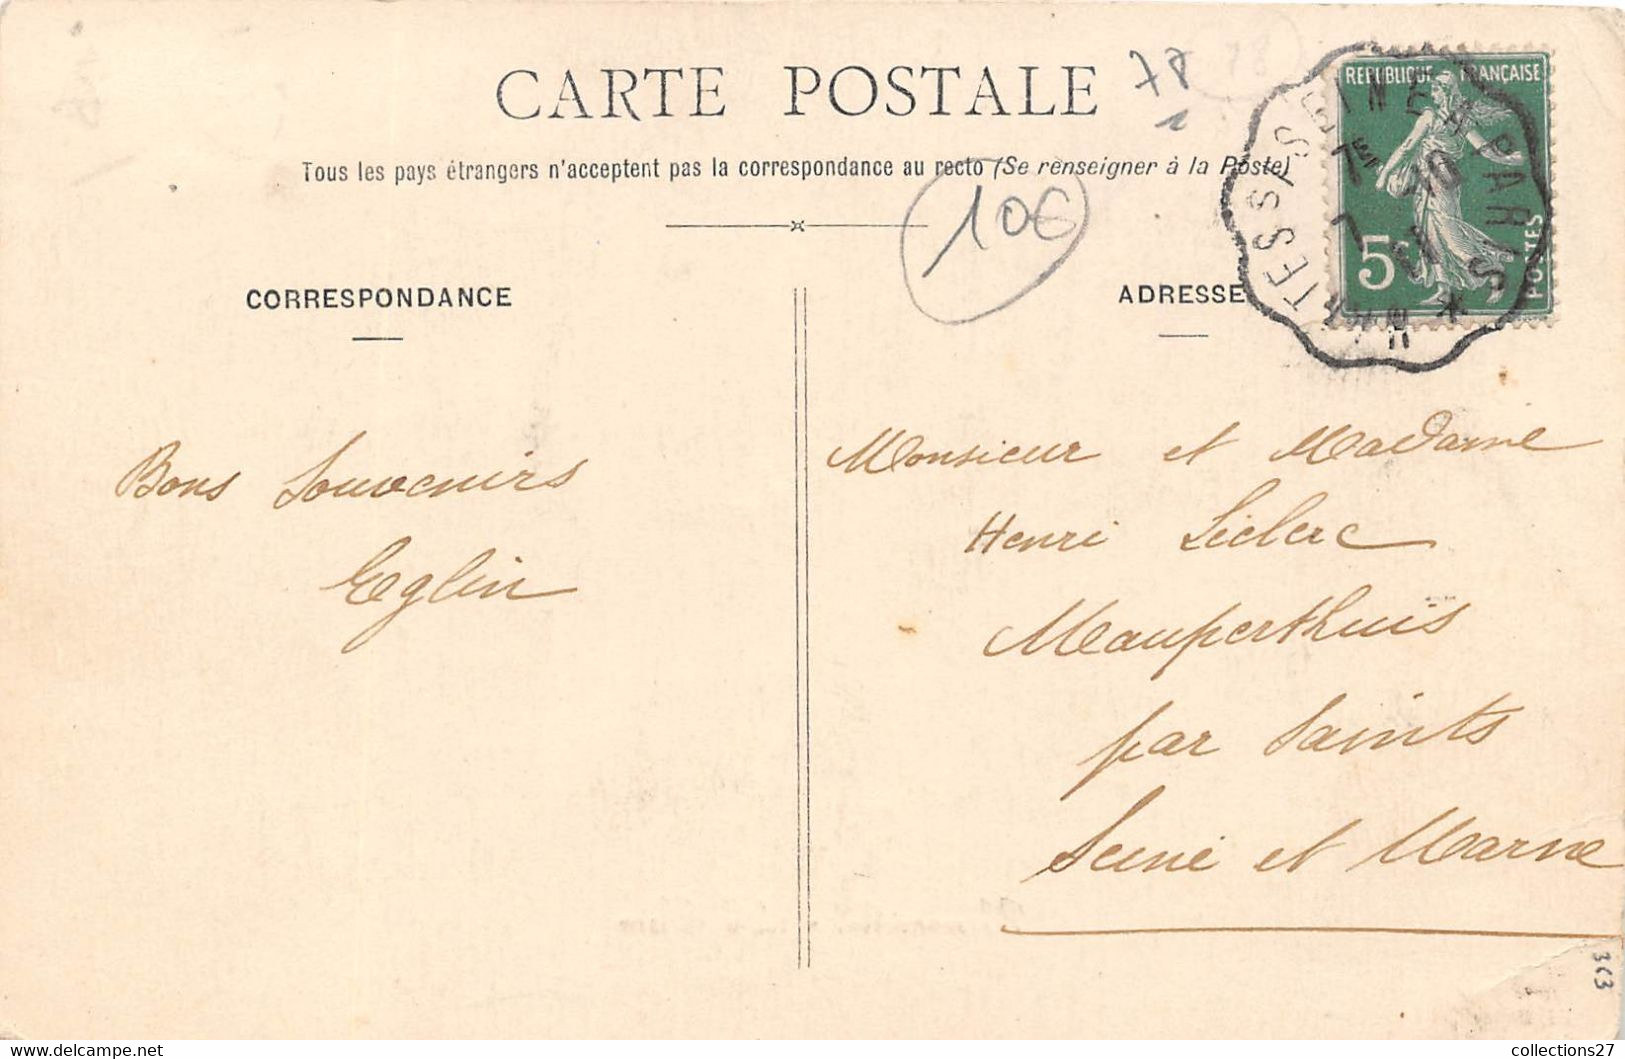 CARTE POSTALE
78
1
Tous les pays étrangers n'acceptent pas la correspondance au recto (Se renseigner à la Poste)
10€
CORRESPONDANCE
ADRESSE
REPUBLIQUE FRANÇAISE
5c
POSTES
MANTES S/SEINE A PARIS *
7E
7
-10
11
Bons Souvenirs
Eglin
Monsieur et Madame
Henri Leclerc
Mauperthuis
par Saints
Seine et Marne
363
collections27